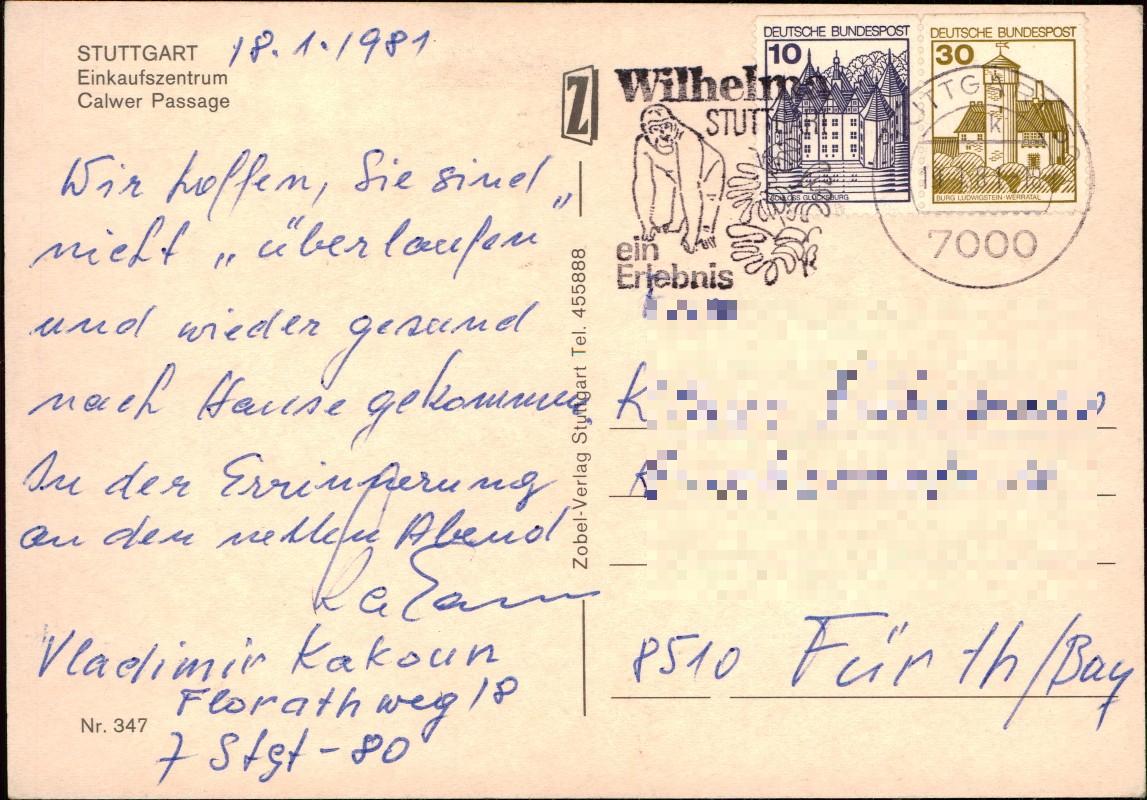 STUTTGART
Einkaufszentrum
Calwer Passage
18.1.1981
Wir hoffen, Sie sind
nicht „überlaufen"
und wieder gesund
nach Hause gekommen
In der Errinnerung
an den netten Abend
Vladimir Kakoun
Florathweg 18
7 Stgt-80
Nr. 347
Zobel-Verlag Stuttgart Tel. 455888
Z
Wilhelma
STUTT
ein
Erlebnis
DEUTSCHE BUNDESPOST
10
SCHLOSS GLÜCKSBURG
DEUTSCHE BUNDESPOST
30
BURG LUDWIGSTEIN-WERRATAL
7000
K
K
8510 Fürth/Bay